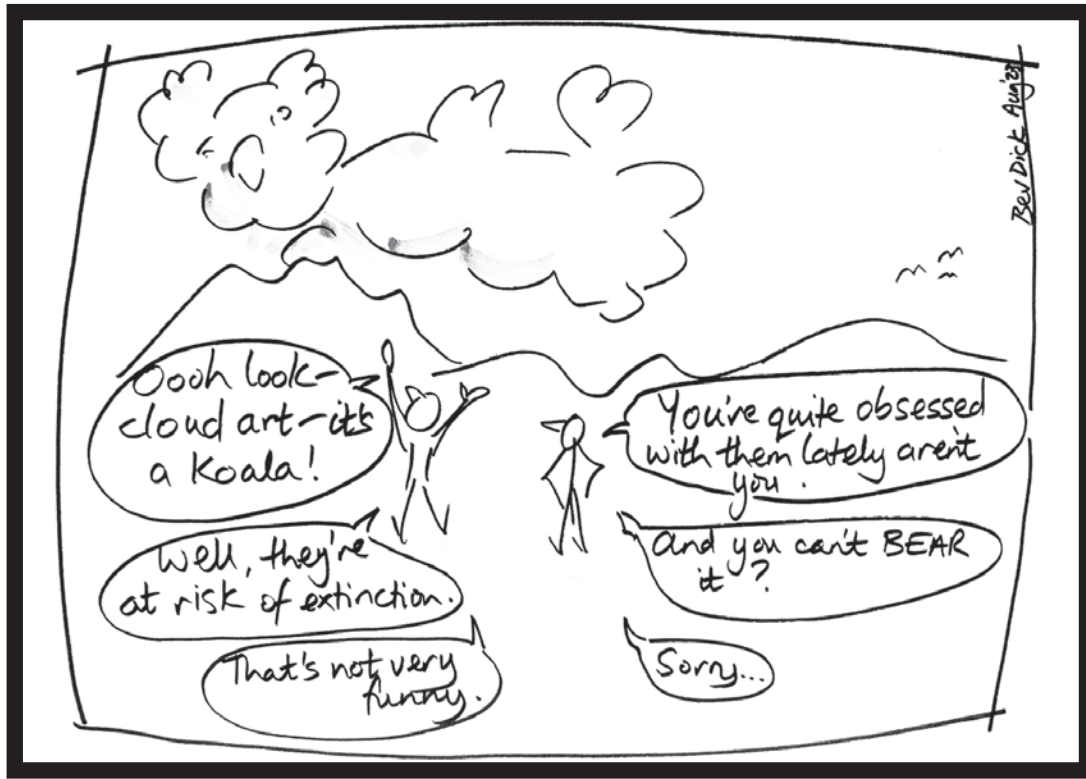 Oooh look-
cloud art-it's
a Koala!
You're quite obsessed
with them lately aren't
you.
Well, they're
at risk of extinction.
And you can't BEAR
it?
That's not very
funny.
Sorry...
Bev Dick Aug'20